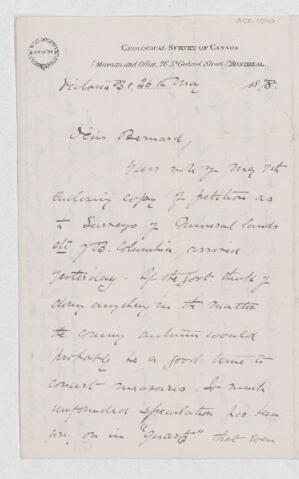 GEOLOGICAL SURVEY OF CANADA
(Museum and Office, 76 St. Gabriel Street,) MONTREAL.
Victoria B.C. 25th May 1878.
Dear Bernard,
Yours note of May 7th
enclosing copy of petition as
to Surveys of Mineral lands
etc of B. Columbia, arrived
yesterday. If the Govt think of
doing anything in the matter
the coming autumn would
probably be a good time to
concert measures. So much
unfounded speculation has been
going on in "Quartz" that even